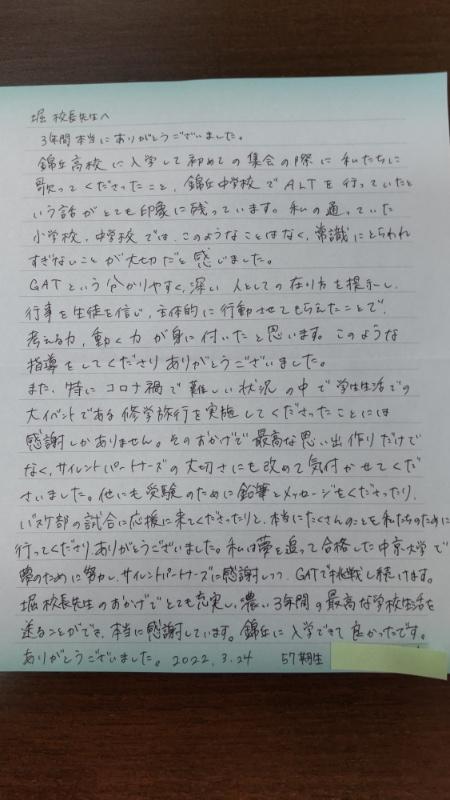 堀 校長先生へ
3年間本当にありがとうございました。
錦丘高校に入学して初めての集会の際に私たちに
歌ってくださったこと、錦丘中学校でALTを行っていたと
いう話がとても印象に残っています。私の通っていた
小学校、中学校では、このようなことはなく、常識にとらわれ
すぎないことが大切だと感じました。
GATという分かりやすく、深い人としての在り方を提示し、
行事を生徒を信じ、主体的に行動させてもらえたことで、
考える力、動く力が身に付いたと思います。このような
指導をしてくださりありがとうございました。
また、特にコロナ禍で難しい状況の中で学生生活での
大イベントである修学旅行を実施してくださったことには
感謝しかありません。そのおかげで最高な思い出作りだけで
なく、サイレントパートナーズの大切さにも改めて気付かせてくだ
さいました。他にも受験のために鉛筆とメッセージをくださったり、
バスケ部の試合に応援に来てくださったりと、本当にたくさんのことを私たちのために
行ってくださり、ありがとうございました。私は夢を追って合格した中京大学で
夢のために努力し、サイレントパートナーズに感謝しつつ、GATで挑戦し続けます。
堀校長先生のおかげでとても充実し、濃い3年間の最高な学校生活を
送ることができ、本当に感謝しています。錦丘に入学できて良かったです。
ありがとうございました。2022.3.24 57期生